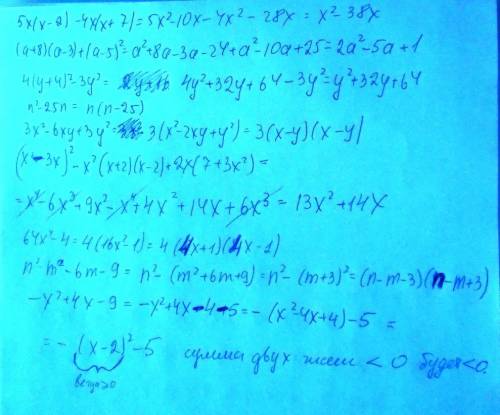 5x(x-2) -4x(x+7)=5x²-10x-4x²-28x=x²-38x
(a+8)(a-3)+(a-5)²=a²+8a-3a-24+a²-10a+25=2a²-5a+1
4(y+4)²-3y²= 4y²+32y+64-3y²=y²+32y+64
n²-25n=n(n-25)
3x²-6xy+3y²= 3(x²-2xy+y²)=3(x-y)(x-y)
(x²-3x)²-x²(x+2)(x-2)+2x(7+3x²)=
=x⁴-6x³+9x²-x⁴+4x²+14x+6x³=13x²+14x
64x²-4=4(16x²-1)=4(4x+1)(4x-1)
n²-m²-6m-9=n²-(m²+6m+9)=n²-(m+3)²=(n-m-3)(n-m+3)
-x²+4x-9=-x²+4x-4-5=-(x²4x+4)-5=
=-(x-2)²-5 сумма двух <0 будет<0.
всегда>0